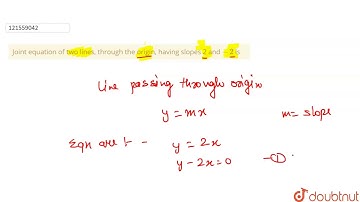 121559042
Joint equation of two lines, through the origin, having slopes 2 and -2 is
Line passing through origin
y = mx m = slope
Eqn are :- y = 2x
y - 2x = 0 -①
doubtnut